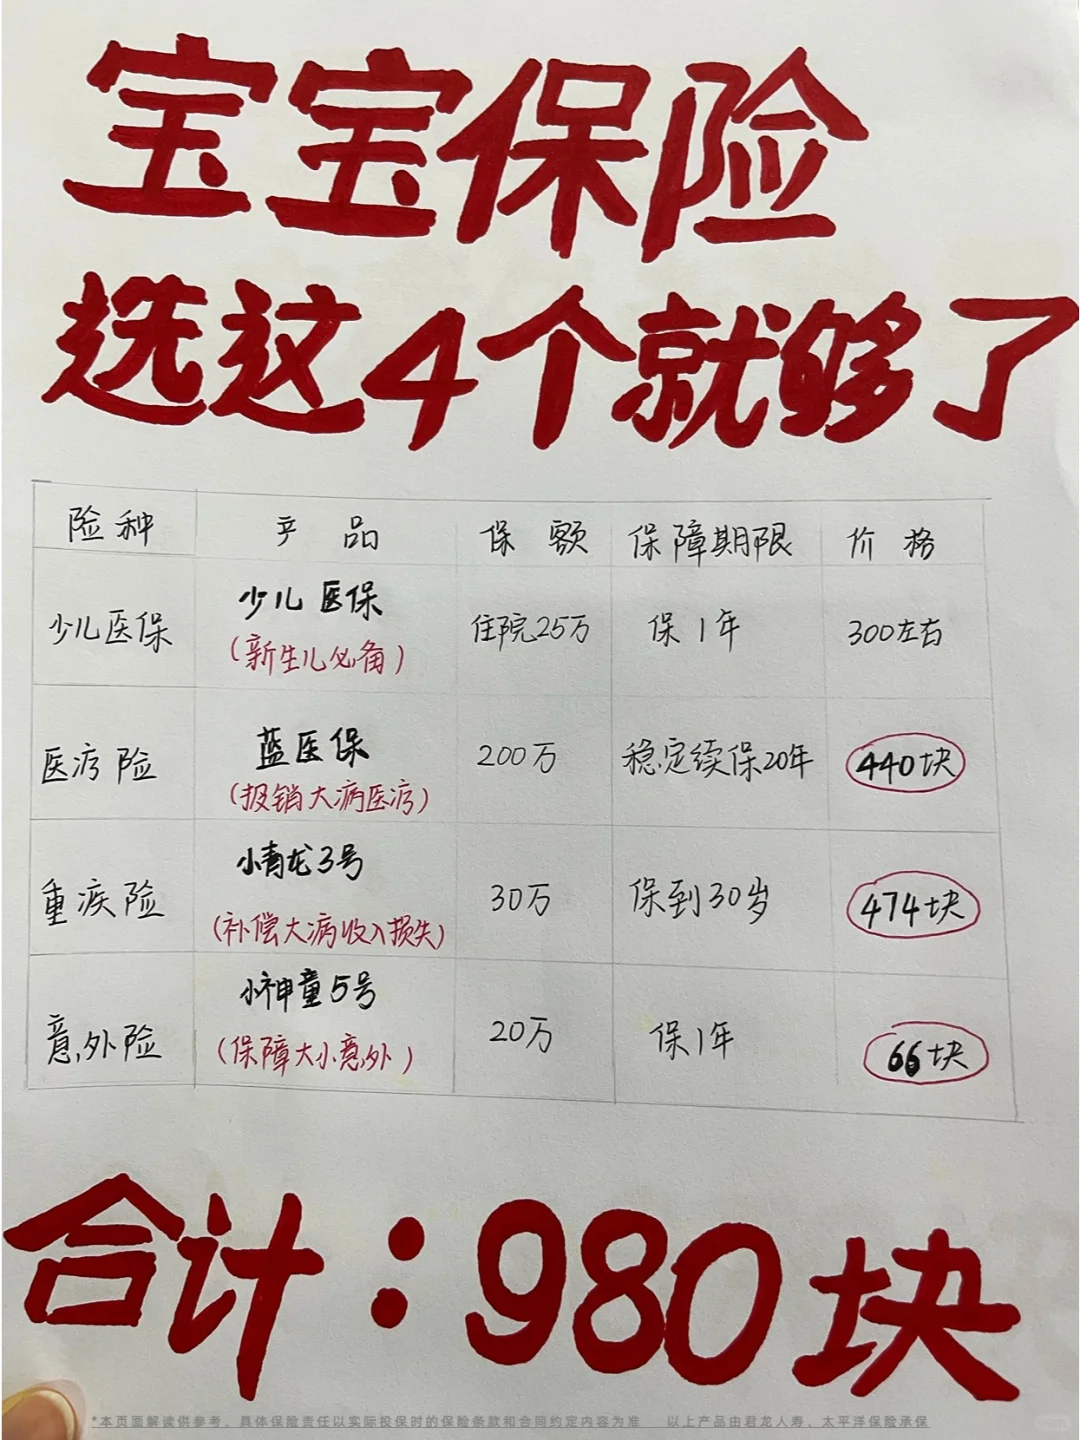 宝宝保险
选这4个就够了
险种 产品 保额 保障期限 价格
少儿医保 少儿医保 住院25万 保1年 300左右
(新生儿必备)
医疗险 蓝医保 200万 稳定续保20年 440块
(报销大病医疗)
重疾险 小青龙3号 30万 保到30岁 474块
(补偿大病收入损失)
意外险 小神童5号 20万 保1年 66块
(保障大小意外)
合计:980块
*本页面解读供参考。具体保险责任以实际投保时的保险条款和合同约定内容为准 以上产品由君龙人寿、太平洋保险承保